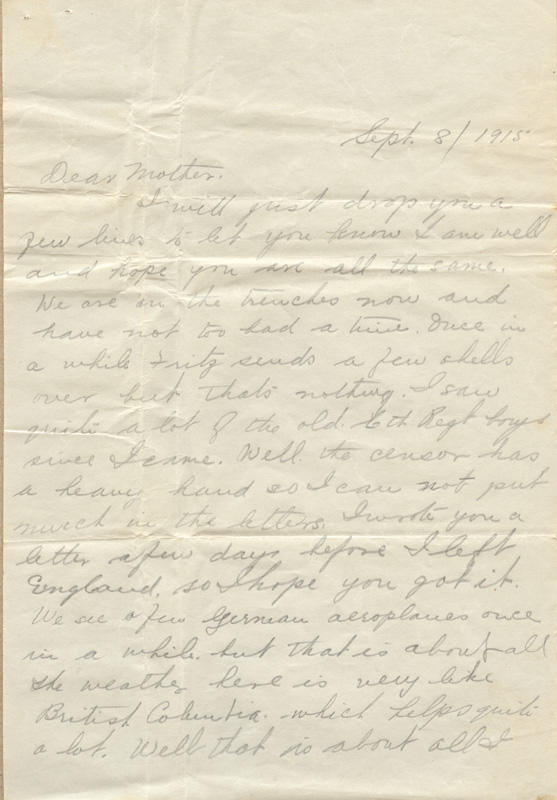 Sept. 8/1915
Dear Mother.
I will just drop you a
few lines to let you know I am well
and hope you are all the same.
We are in the trenches now and
have not too bad a time. Once in
a while Fritz sends a few shells
over but thats nothing. I saw
quite a lot of the old 6th Regt boys
since I came. Well the censor has
a heavy hand so I can not put
much in the letters. I wrote you a
letter a few days before I left
England, so I hope you got it.
We see a few German aeroplanes once
in a while. but that is about all
the weather here is very like
British Columbia. which helps quite
a lot. Well that is about all I